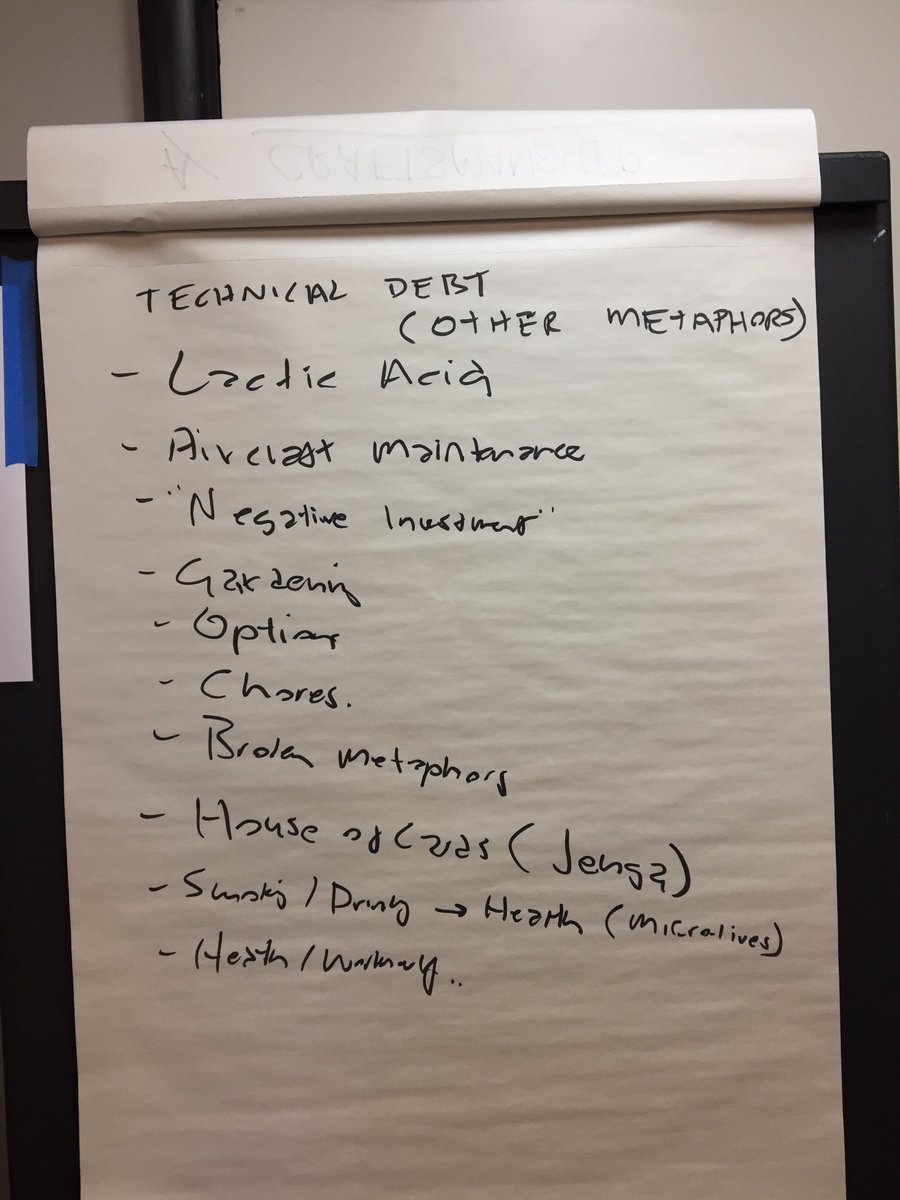 A CRAFTSMANSHIP
TECHNICAL DEBT
(OTHER METAPHORS)
- Lactic Acid
- Aircraft maintenance
- "Negative Investment"
- Gardening
- Options
- Chores.
- Broken metaphors
- House of Cards (Jenga)
- Smoking / Drinking → Health (microlives)
- Health /